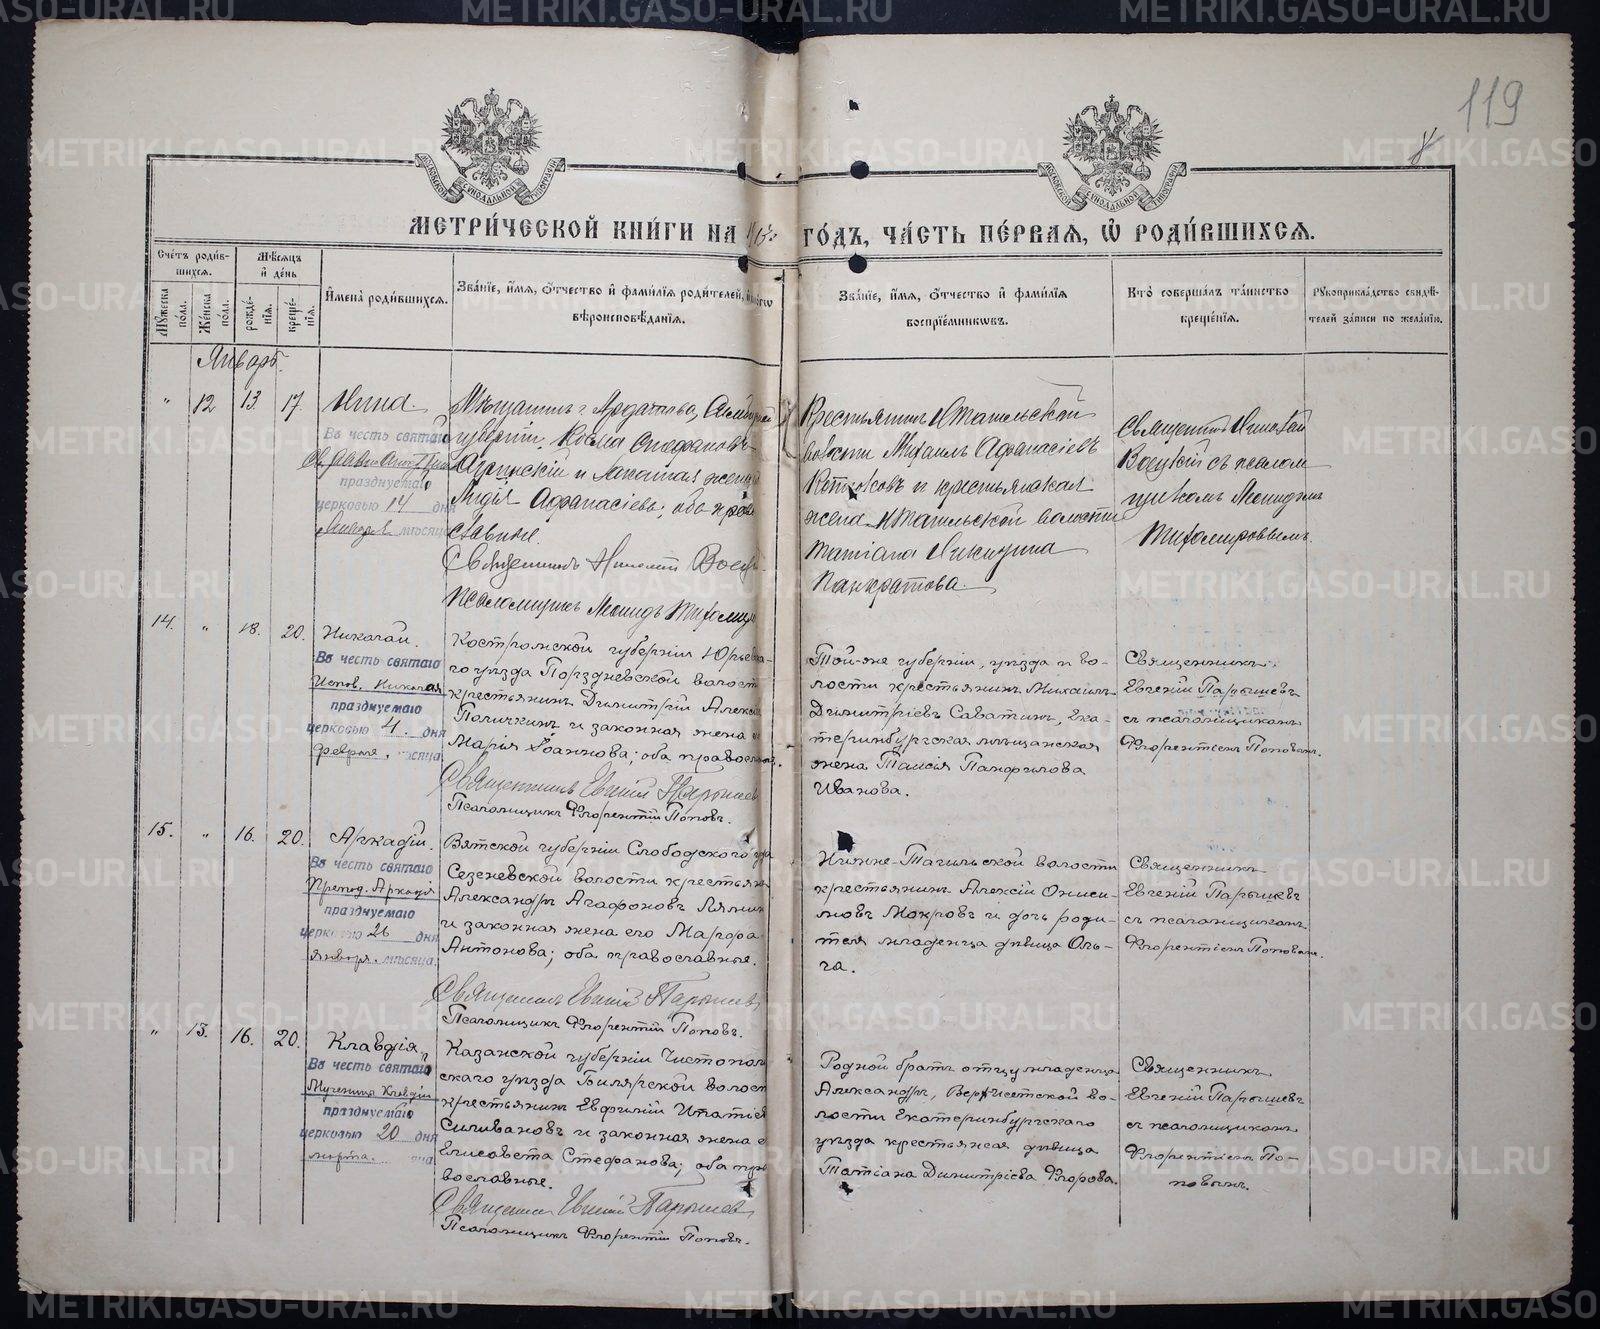 119
МОСКОВСКОЙ СѴНОДАЛЬНОЙ ТИПОГРАФІИ
МОСКОВСКОЙ СѴНОДАЛЬНОЙ ТИПОГРАФІИ
МЕТРИ́ЧЕСКОЙ КНИ́ГИ НА ГО́ДЪ, ЧА́СТЬ ПЕ́РВАЯ, Ѡ҆ РОДИ́ВШИХСЯ.
Сче́тъ роди́в-
шихся.
Мѣ́сяцъ
и҆ де́нь
Мꙋ́жеска
по́ла.
Же́нска
по́ла.
рожде́-
нїя.
креще́-
нїя.
И҆мена̀ роди́вшихся.
Зва́нїе, и҆́мя, ѻ҆́тчество и҆ фами́лїя роди́телей,
вѣроисповѣ́данїя.
Зва́нїе, и҆́мя, ѻ҆́тчество и҆ фами́лїя
воспрїе́мникѡвъ.
Кто̀ соверша́лъ та́инство
креще́нїя.
Рꙋкоприкла́дство свидѣ́-
телей за́писи по жела́нїю.
Январь.
" 12 13. 17. Нина
Въ честь святаго
празднуемаго
церковью 14 дня
Января мѣсяца
Мѣщанинъ г. Ардатова,
губерніи, Косма Стефановъ
и законная жена
Лидія Афанасіева; оба право-
славные.
Священникъ Николай
Псаломщикъ Леонидъ
Крестьянинъ Н.Тагильской
волости Михаилъ Афанасіевъ
и крестьянская
жена Н.Тагильской волости
Татіана Никитина
Панкратова.
Священникъ Николай
съ псалом-
щикомъ Леонидомъ
Тихомировымъ.
14. " 18. 20. Николай.
Въ честь святаго
Испов. Николая
празднуемаго
церковью 4. дня
февраля. мѣсяца
Костромской губерніи Юрьевец-
каго уѣзда Порздневской волости
крестьянинъ Димитрій Алексѣевъ
и законная жена его
Марія Іоаннова; оба православные.
Священникъ Евгеній Парышевъ
Псаломщикъ Флорентій Поповъ.
Той-же губерніи, уѣзда и во-
лости крестьянинъ Михаилъ
Димитріевъ Саватинъ, Ека-
теринбургская мѣщанская
жена Таисія Панфилова
Иванова.
Священникъ
Евгеній Парышевъ
съ псаломщикомъ
Флорентіемъ Поповымъ.
15. " 16. 20. Аркадій.
Въ честь святаго
Препод. Аркадія
празднуемаго
церковью 26 дня
января. мѣсяца
Вятской губерніи Слободского уѣзда
Сезеневской волости крестьянинъ
Александръ Агафоновъ
и законная жена его Марфа
Антонова; оба православные.
Священникъ Евгеній Парышевъ
Псаломщикъ Флорентій Поповъ.
Нижне-Тагильской волости
крестьянинъ Алексій Ониси-
мовъ Мокровъ и дочь роди-
теля младенца дѣвица Оль-
га.
Священникъ
Евгеній Парышевъ
съ псаломщикомъ
Флорентіемъ Поповымъ.
" 13. 16. 20. Клавдія.
Въ честь святаго
Мученица Клавдіи
празднуемаго
церковью 20 дня
марта.
Казанской губерніи Чистополь-
скаго уѣзда Билярской волости
крестьянинъ Евфимій
Силивановъ и законная жена его
Елисавета Стефанова; оба пра-
вославные.
Священникъ Евгеній Парышевъ
Псаломщикъ Флорентій Поповъ.
Родной братъ отцу младенца
Александръ, Верхъисетской во-
лости Екатеринбургскаго
уѣзда крестьянская дѣвица
Татіана Димитріева Флорова.
Священникъ
Евгеній Парышевъ
съ псаломщикомъ
Флорентіемъ По-
повымъ.
METRIKI.GASO-URAL.RU